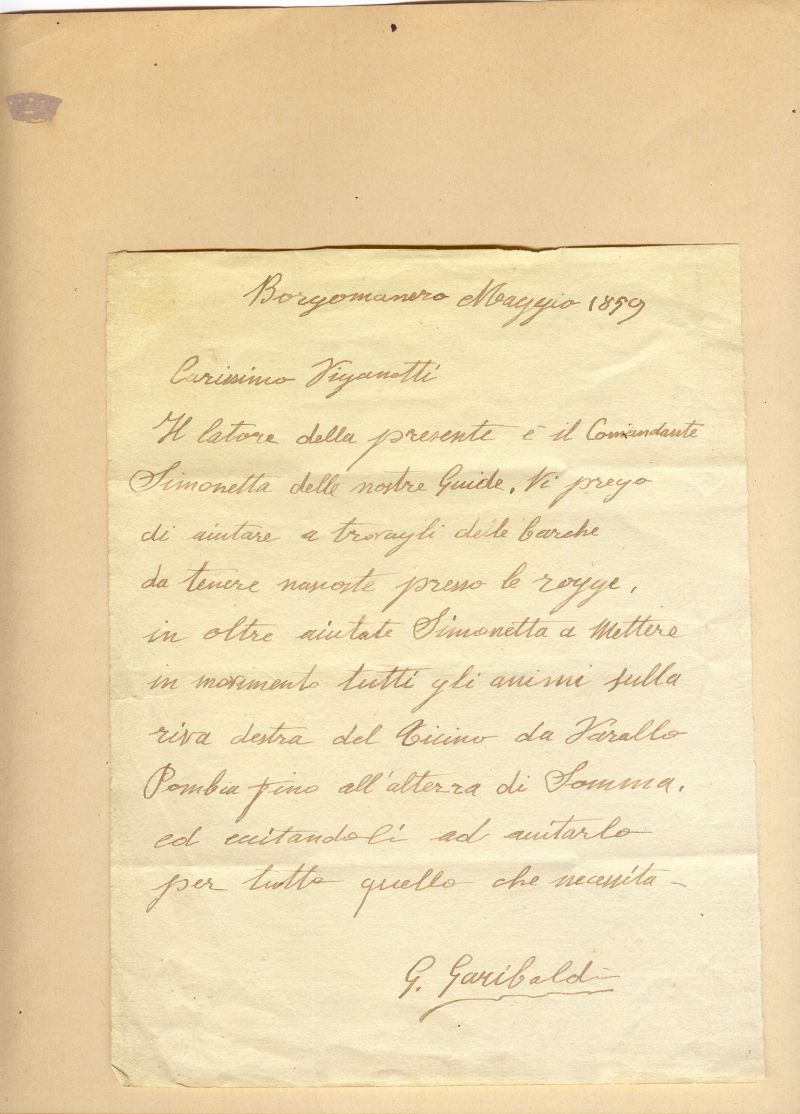 Borgomanero Maggio 1859
Carissimo Viganotti
Il latore della presente è il Comandante
Simonetta delle nostre Guide. Vi prego
di aiutare a trovagli delle barche
da tenere nascoste presso le rogge,
in oltre aiutate Simonetta a Mettere
in movimento tutti gli animi sulla
riva destra del Ticino da Varallo
Pombia fino all'altezza di Somma,
ed eccitandoli ad aiutarlo
per tutto quello che necessita –
G. Garibaldi